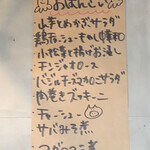 おばんざい
山芋とめかぶサラダ
鶏チャーシューともやし
小松菜と揚げお浸し
チンジャオロース
バジルチーズマカロニサラダ
肉巻きズッキーニ
チャーシュー
サバみそ煮